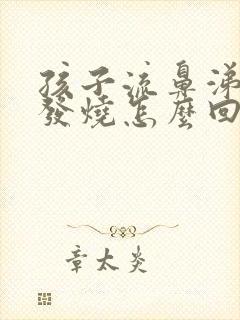 孩子流鼻涕
發燒怎麼回
章太炎